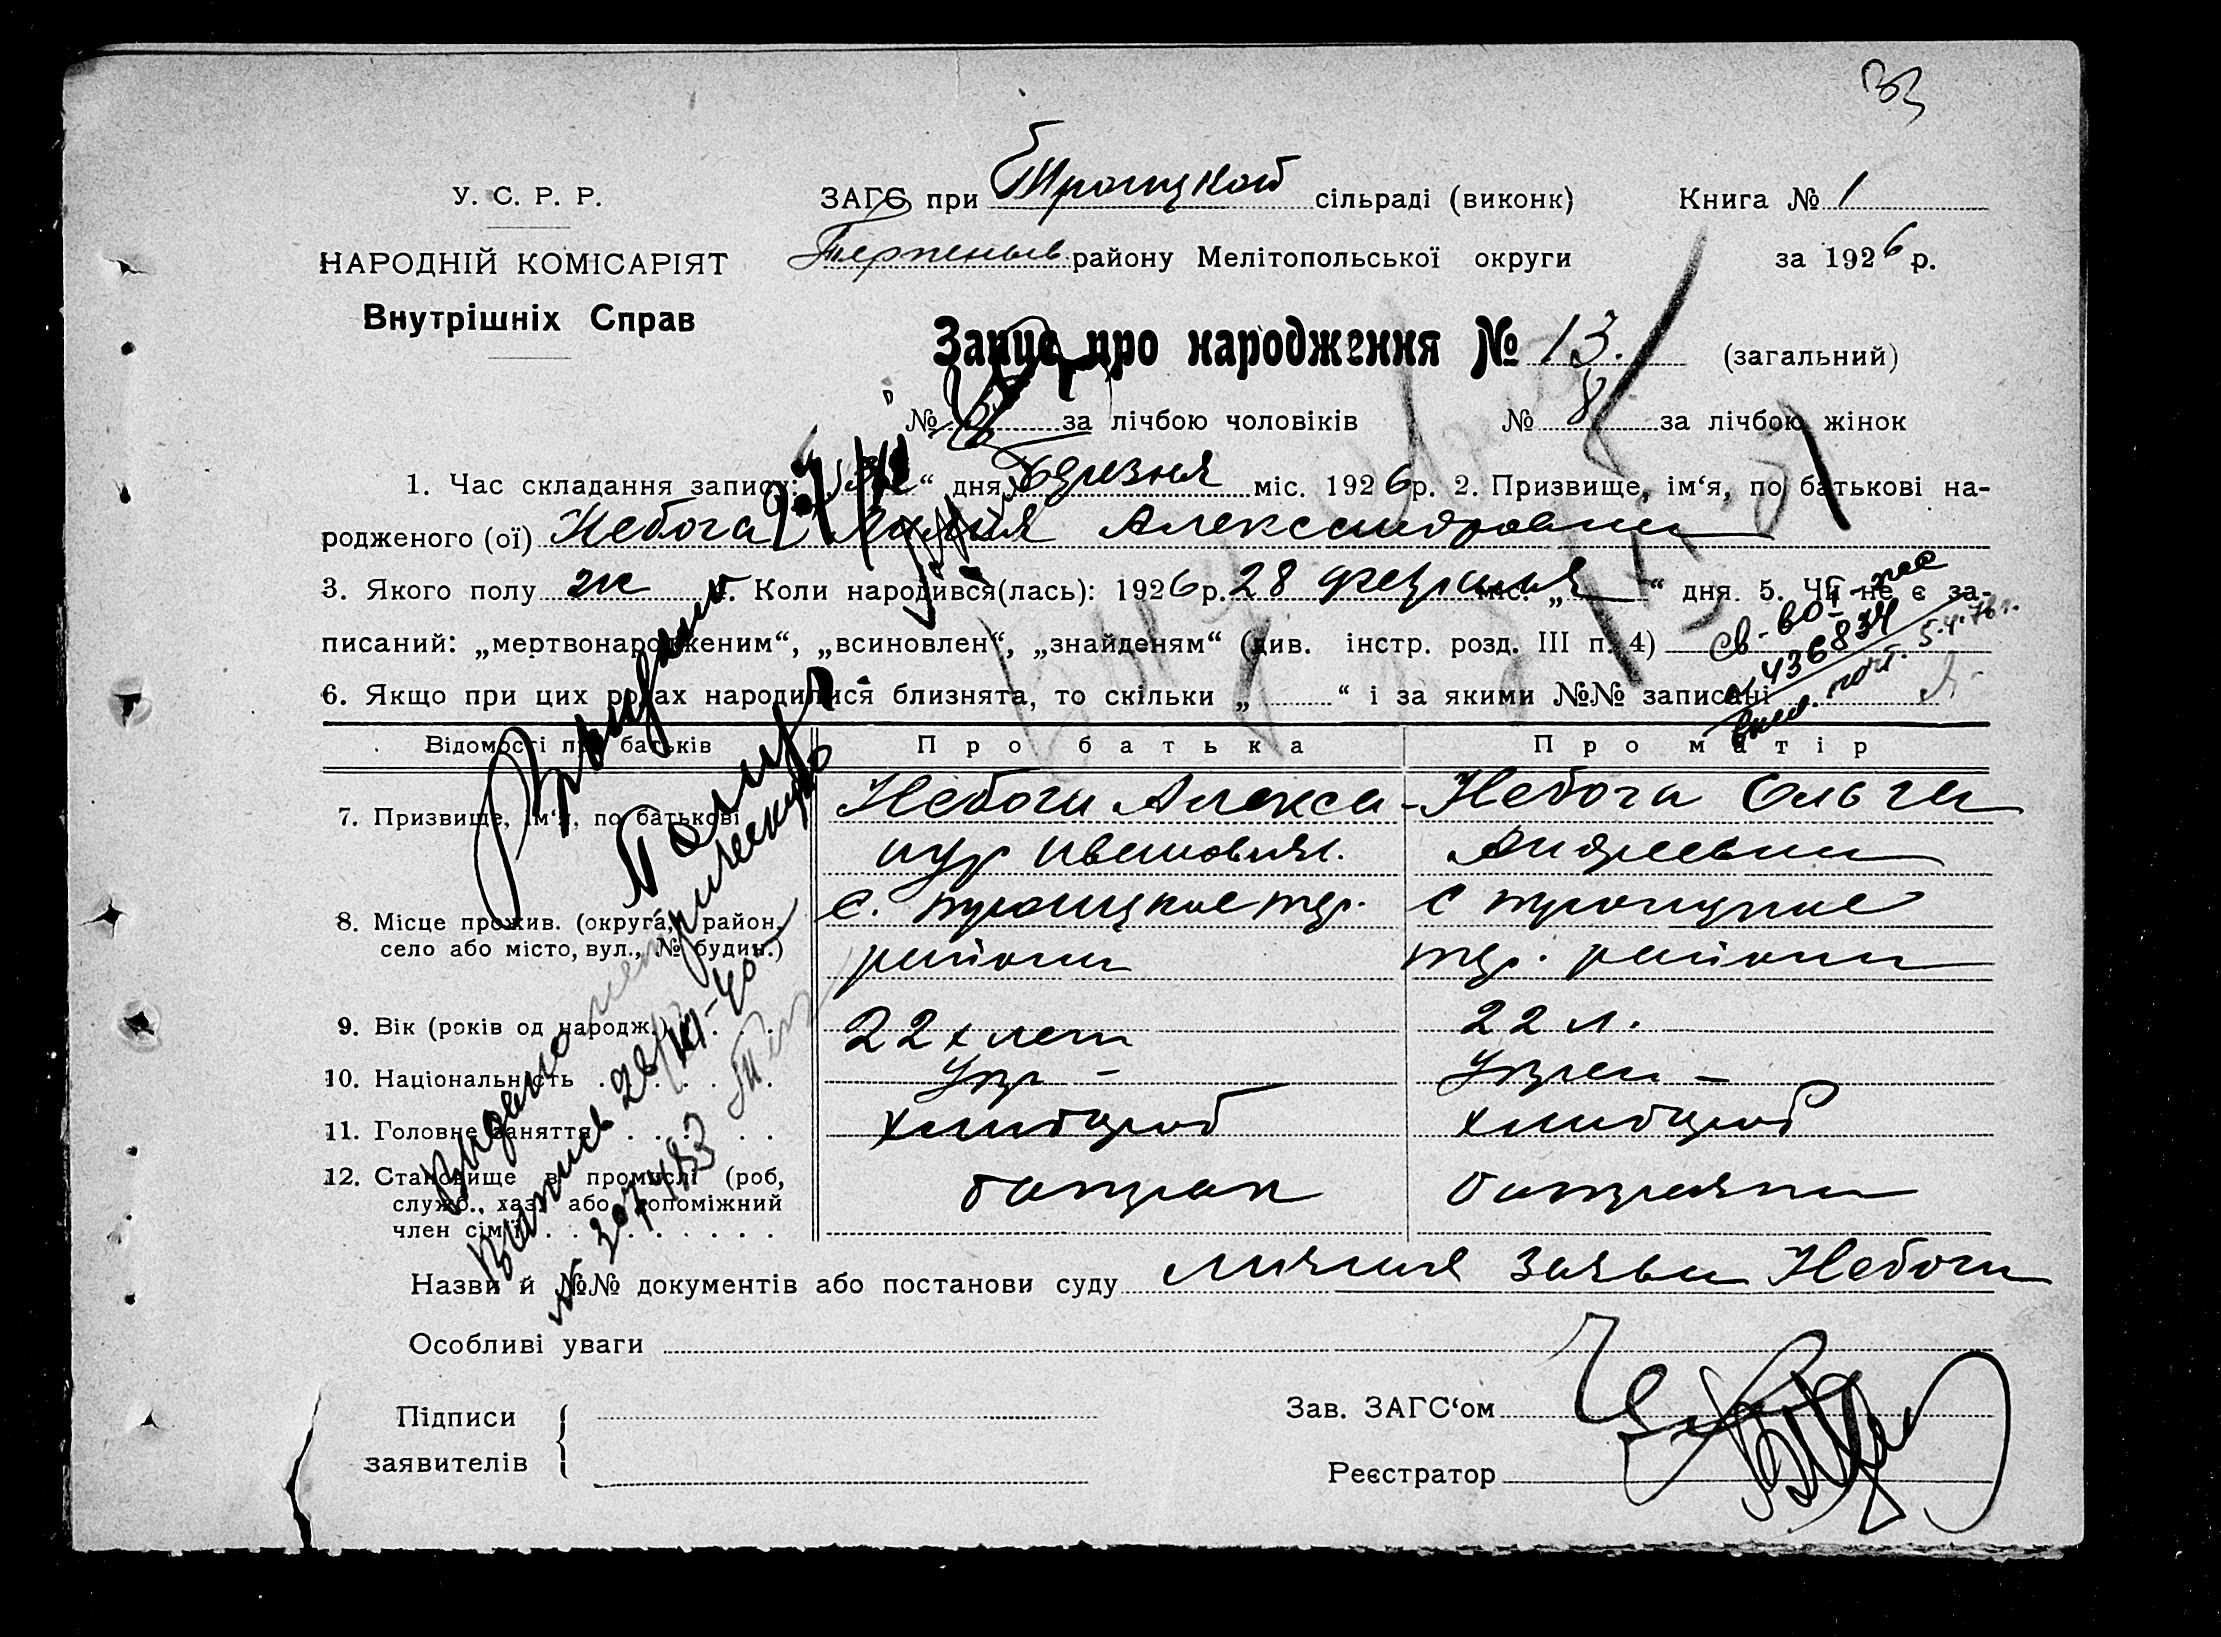 33
У. С. Р. Р.
НАРОДНІЙ КОМІСАРІЯТ
Внутрішніх Справ
ЗАГС при Троицкой сільраді (виконк)
района Мелітопольської округи
Книга № 1
за 1926 р.
Запис про народження № 13. (загальний)
№ за лічбою чоловіків № 8 за лічбою жінок
1. Час складання запису: “ дня Березня міс. 1926 р. 2. Призвище, ім‘я, по батькові на-
родженого (ої) Небога Александровна
3. Якого полу ж 4. Коли народився(лась): 1926 р. 28 февраля міс. „ “ дня. 5. Чи не є за-
писаний: „мертвонародженим“, „всиновлен“, „знайденям“ (див. інстр. розд. III п. 4)
св-во
436834
5.4.76 г.
6. Якщо при цих родах народилися близнята, то скільки „ “ і за якими №№ записані
Відомості про батьків Про батька Про матір
7. Призвище, ім‘я, по батькові Небога Алекса- Небога Ольга
ндр Иванович. Андреевна
8. Місце прожив. (округа, район, с. троицкое тер. с троицкое
село або місто, вул., № будин.) района тер. района
9. Вік (років од народж.) 22х лет 22 л.
10. Національність Укр – Украи –
11. Головне заняття хлибороб хлибороб
12. Становище в промислі (роб, батрак батрачка
служб., хаз. або допоміжний
член сім‘ї)
Видано
Выпись 28/XI-40
№ 307483
Назви й №№ документів або постанови суду заява Небоги
Особливі уваги
Підписи
заявителів
Зав. ЗАГС‘ом
Реєстратор